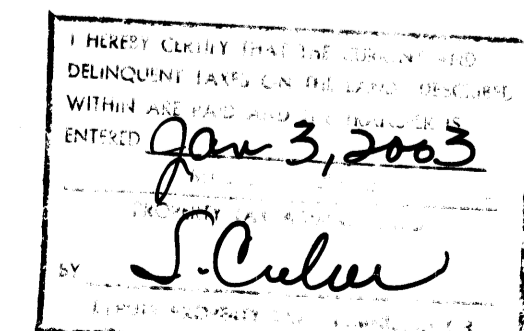 I HEREBY CERTIFY THAT THE CURRENT AND
DELINQUENT TAXES ON THE LANDS DESCRIBED
WITHIN ARE PAID AND THE TRANSFER IS
ENTERED Jan 3, 2003
PROPERTY TAX
BY S. Culver
DEPUTY PROPERTY TAX